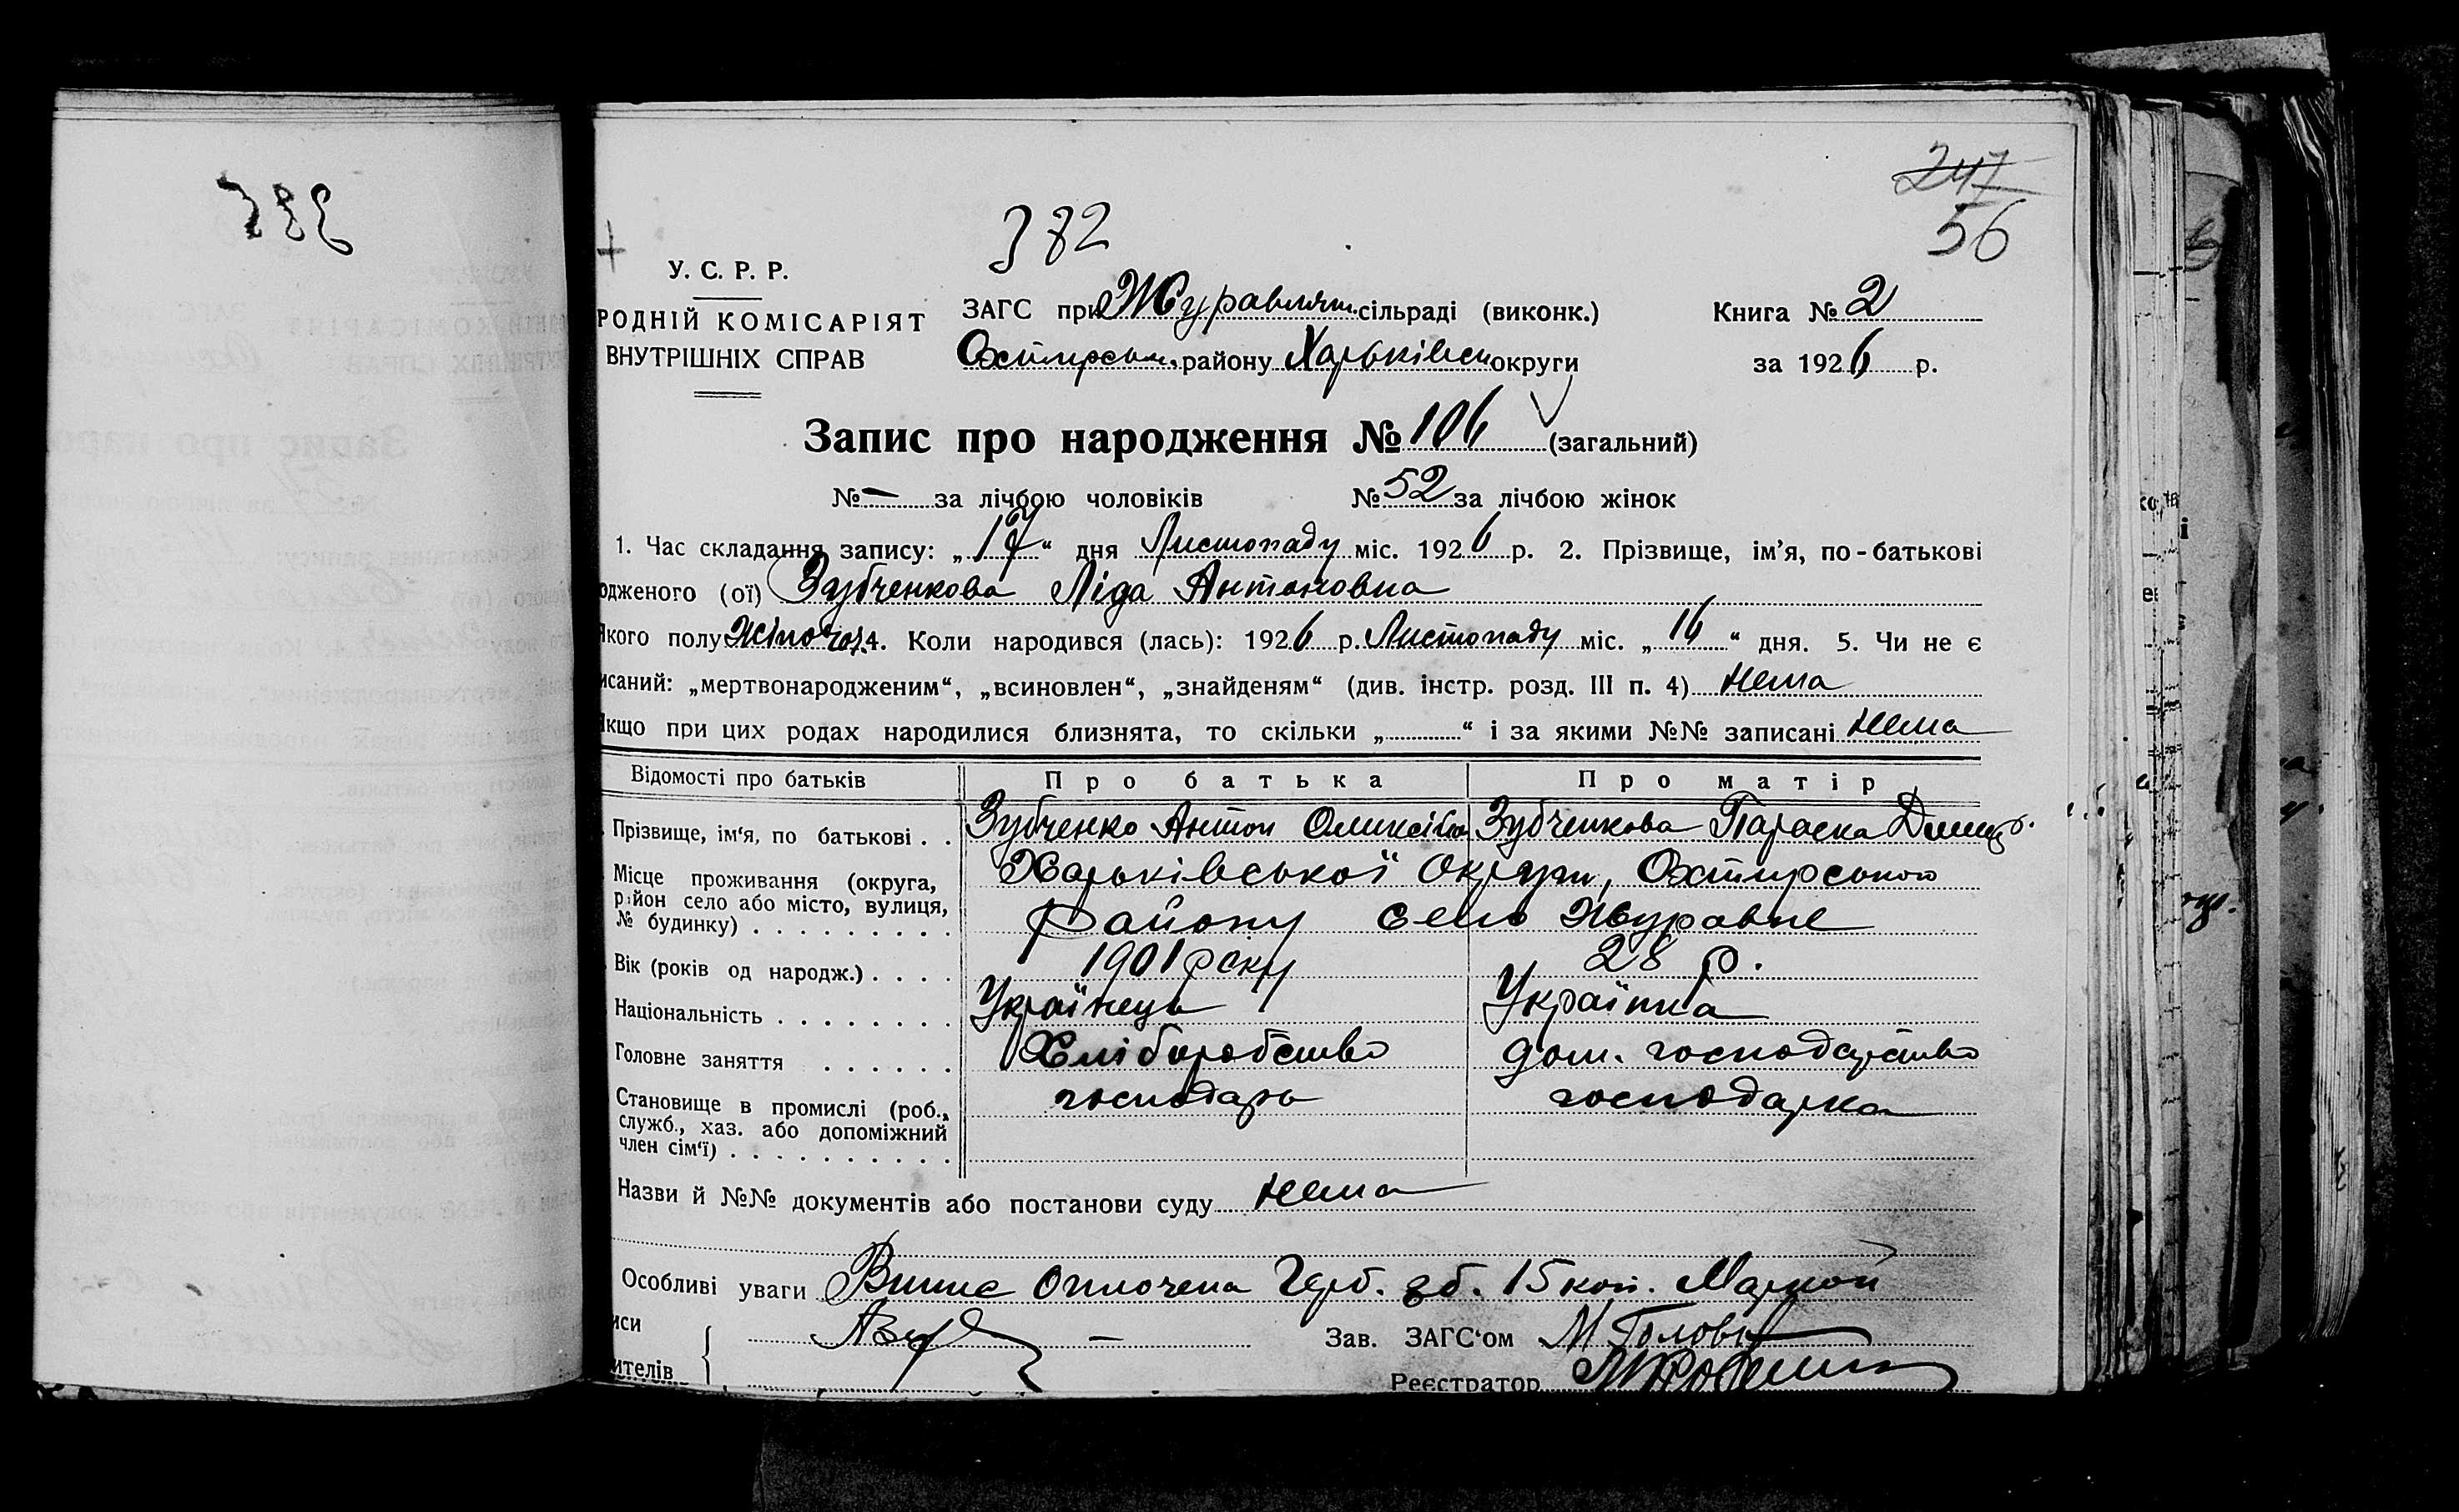 247
56
382
У. С. Р. Р.
РОДНІЙ КОМІСАРІЯТ
ВНУТРІШНІХ СПРАВ
ЗАГС при Журавлян. сільраді (виконк.)
Охтирськ. району Харьківськ округи
Книга № 2
за 1926 р.
Запис про народження № 106 (загальний)
№ — за лічбою чоловіків № 52 за лічбою жінок
1. Час складання запису: „17“ дня Листопаду міс. 1926 р. 2. Прізвище, ім’я, по-батькові
одженого (ої) Зубченкова Ліда Антоновна
якого полу Жіночої 4. Коли народився (лась): 1926 р. Листопаду міс. „16“ дня. 5. Чи не є
исаний: „мертвонародженим“, „всиновлен“, „знайденям“ (див. інстр. розд. III п. 4) нема
Якщо при цих родах народилися близнята, то скільки „.........“ і за якими №№ записані нема
Відомості про батьків Про батька Про матір
Прізвище, ім‘я, по батькові . . Зубченко Антон Зубченкова Параска
Місце проживання (округа, район село або місто, вулиця, № будинку) . . . . . . . . . Харьківської Округи, Охтирського
району село Журавне
Вік (років од народж.) . . . . 1901 року 28 р.
Національність . . . . . . . . Українець Українка
Головне заняття . . . . . . Хліборобство дом. господарство
Становище в промислі (роб., служб., хаз. або допоміжний член сім‘ї) . . . . . . . . . . господарь господарка
Назви й №№ документів або постанови суду нема
Особливі уваги Оплочена Герб. зб. 15 коп. Маркой
иси
ителів
Зав. ЗАГС‘ом
Реєстратор